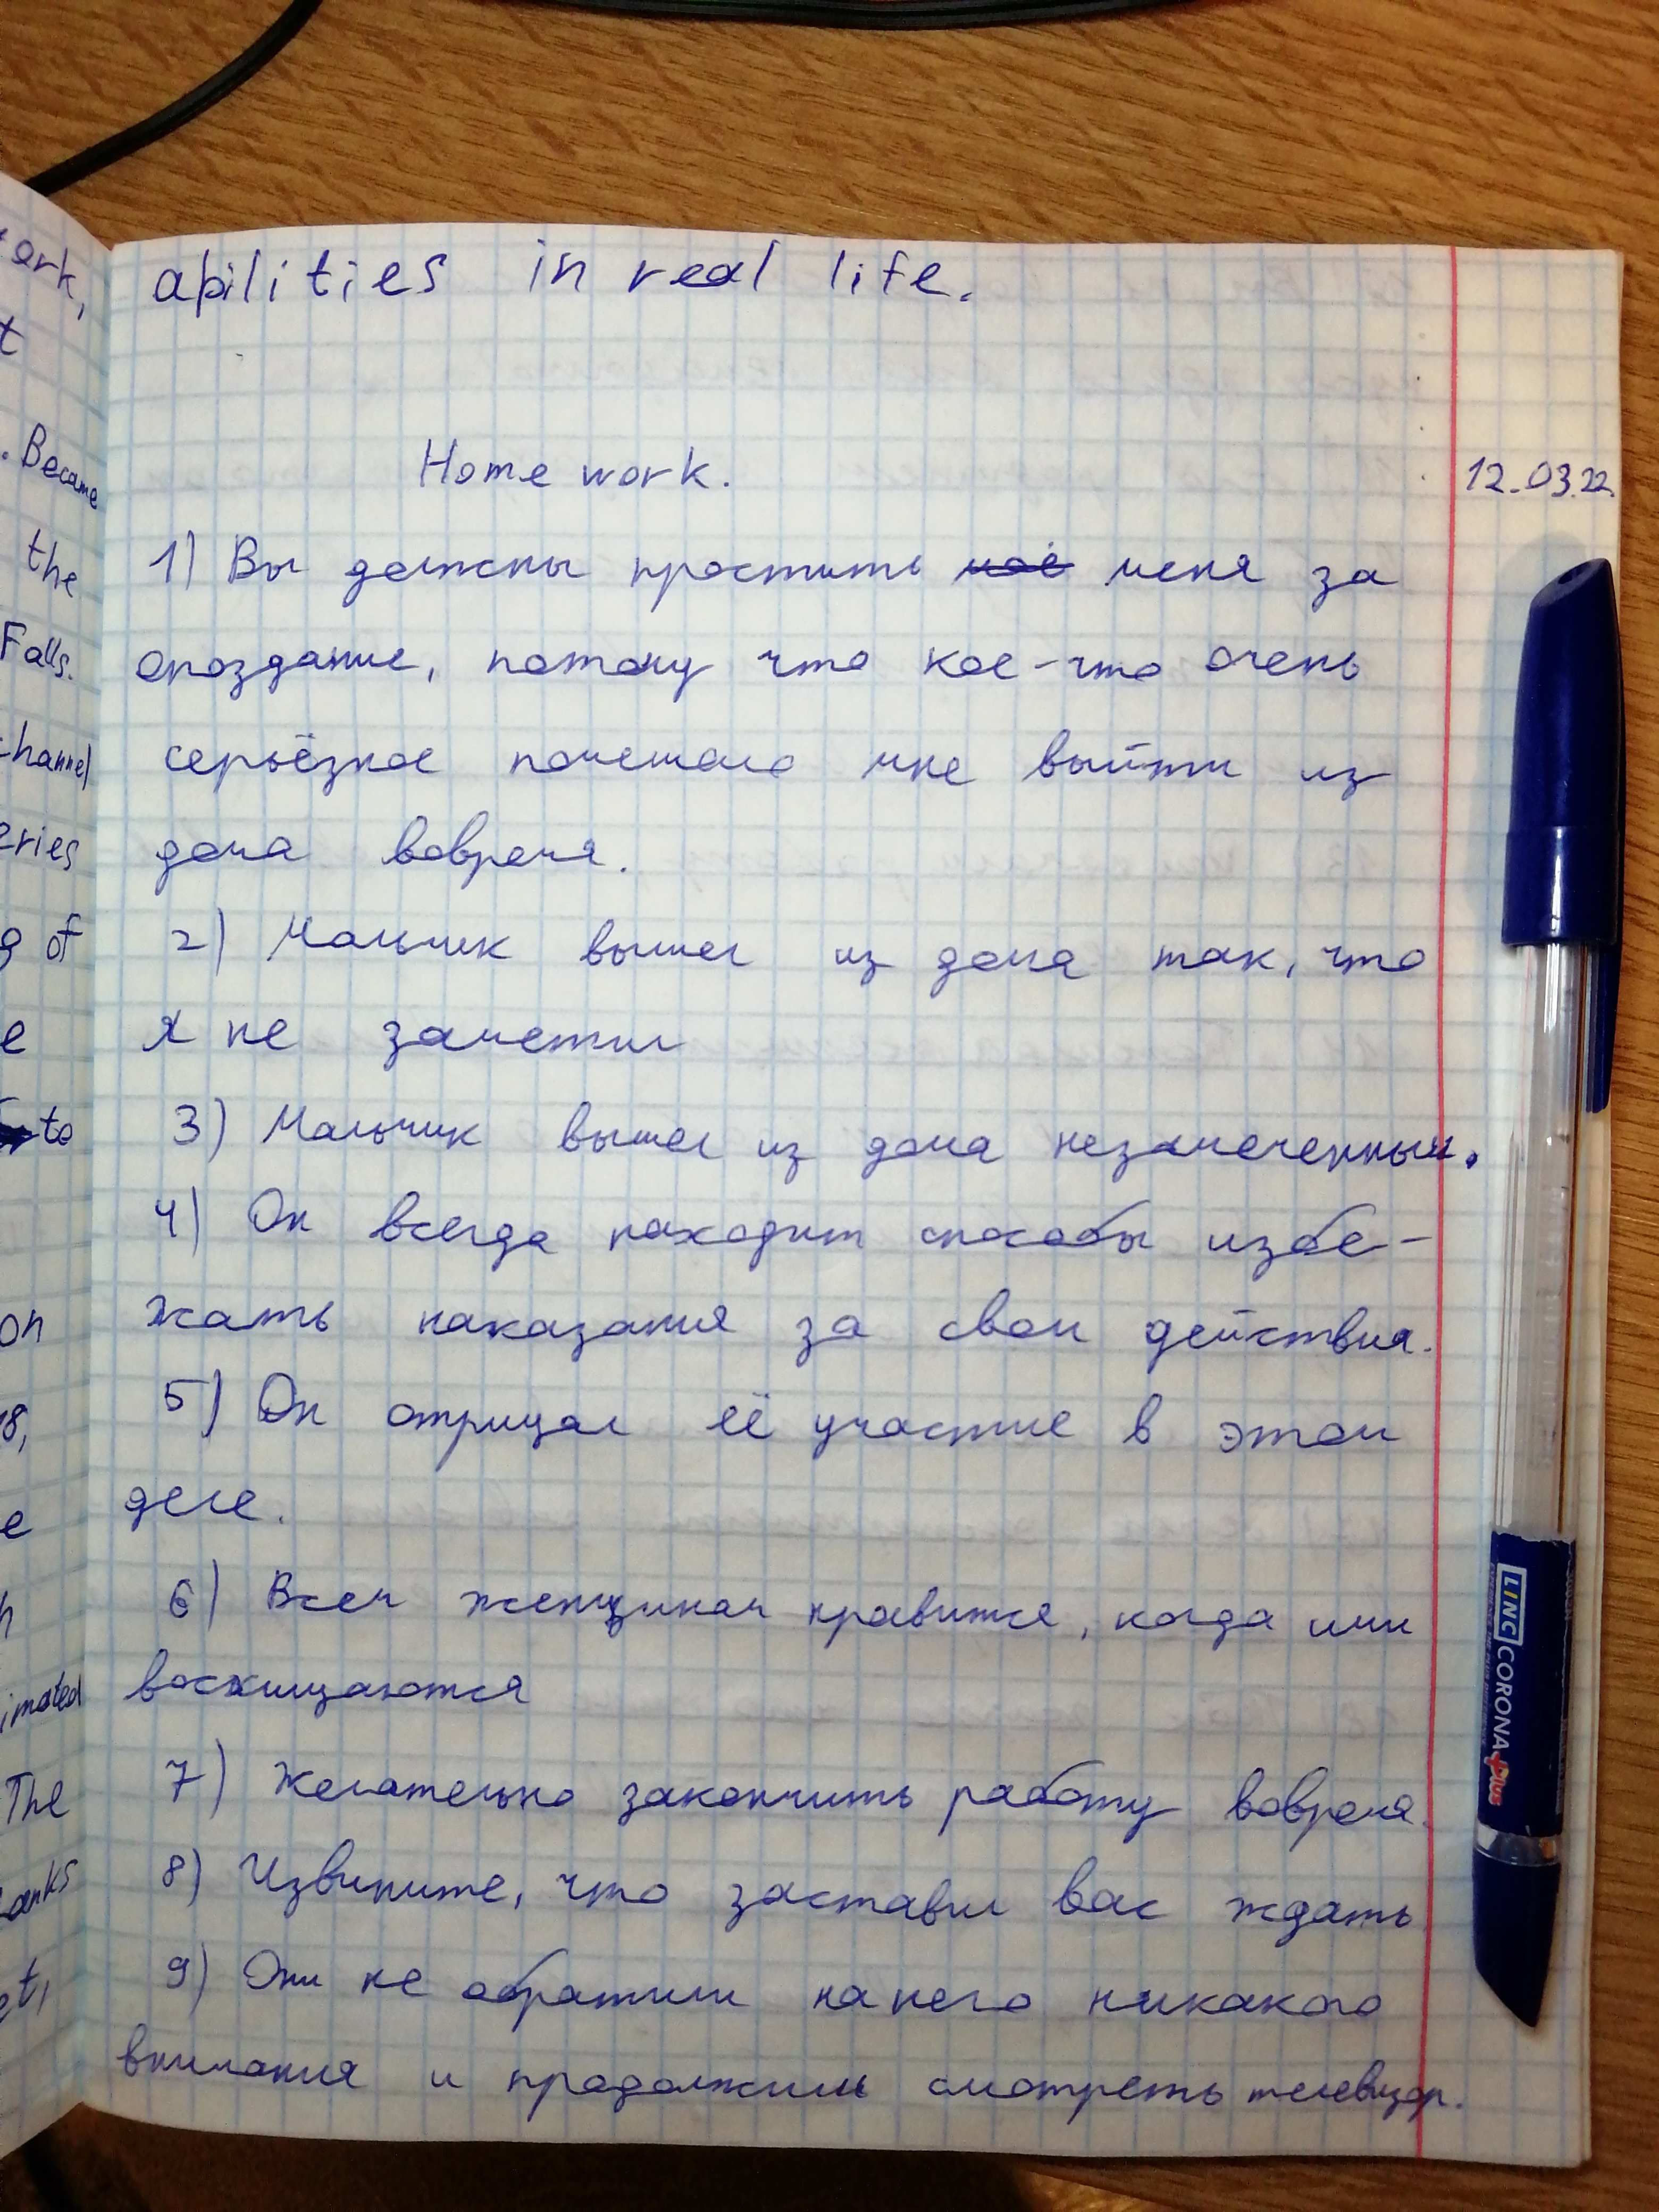 abilities in real life.
Home work.
12.03.22
1) Вы должны простить моё меня за
опоздание, потому что кое-что очень
серьёзное помешало мне выйти из
дома вовремя.
2) Мальчик вышел из дома так, что
я не заметил
3) Мальчик вышел из дома незамеченным.
4) Он всегда находит способы избе-
жать наказания за свои действия.
5) Он отрицал её участие в этом
деле.
6) Всем женщинам нравится, когда ими
восхищаются
7) Желательно закончить работу вовремя.
8) Извините, что заставил вас ждать
9) Они не обратили на него никакого
внимания и продолжили смотреть телевизор.
ork,
t
. Became
the
Falls.
channel
eries
g of
e
to
on
18,
e
h
imated
The
anks
et,
LINC CORONA plus